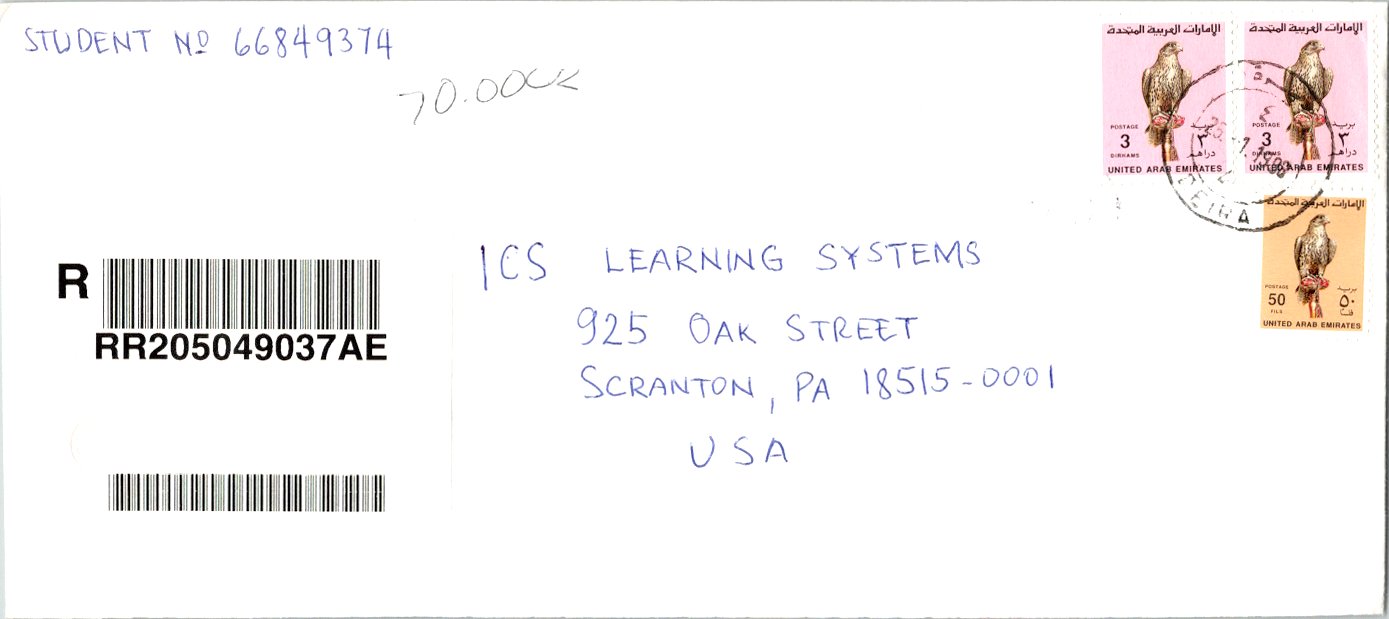 STUDENT No 66849374
70.00CK
الإمارات العربية المتحدة
POSTAGE
بريد
3
٣
DIRHAMS
دراهم
UNITED ARAB EMIRATES
الإمارات العربية المتحدة
POSTAGE
بريد
3
٣
DIRHAMS
دراهم
UNITED ARAB EMIRATES
الإمارات العربية المتحدة
POSTAGE
بريد
50
٥٠
FILS
فلس
UNITED ARAB EMIRATES
R
RR205049037AE
ICS LEARNING SYSTEMS
925 OAK STREET
SCRANTON, PA 18515-0001
USA